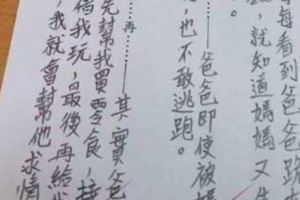 每每看到
，就知道媽媽又生
。
——爸爸即使被媽
，也不敢逃跑。
……再……其實爸
先幫我買零食，接
借我玩，最後再給
，我就會幫他求情